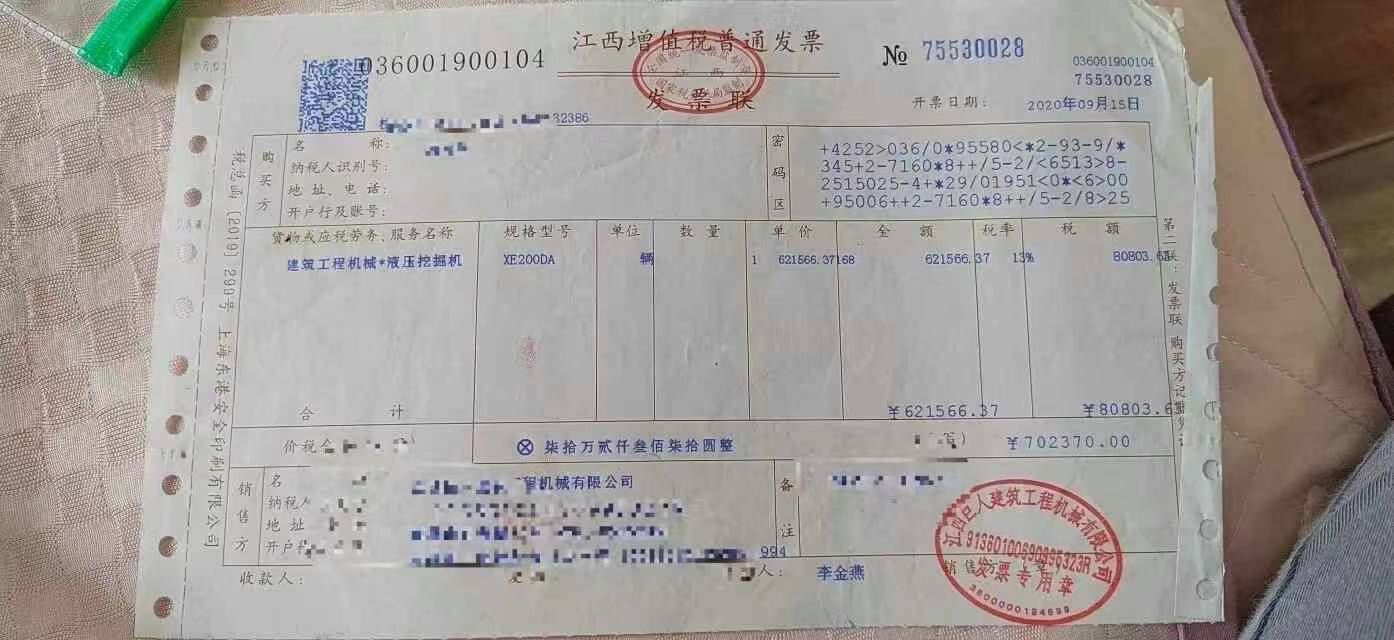 江西增值税普通发票
036001900104
№ 75530028
036001900104
75530028
发票联
开票日期: 2020年09月15日
32386
购买方
名 称:
纳税人识别号:
地 址、电 话:
开户行及账号:
密码区
+4252>036/0*95580<*2-93-9/*
345+2-7160*8++/5-2/<6513>8-
2515025-4+*29/01951<0*<6>00
+95006++2-7160*8++/5-2/8>25
货物或应税劳务、服务名称 规格型号 单位 数 量 单 价 金 额 税率 税 额
建筑工程机械*液压挖掘机 XE200DA 辆 1 621566.37168 621566.37 13% 80803.63
合 计 ¥621566.37 ¥80803.63
价税合 ⊗ 柒拾万贰仟叁佰柒拾圆整 ¥702370.00
销售方
名 程机械有限公司
纳税人
地 址
开户行 994
备注
收款人: 人: 李金燕 销售方
江西巨人建筑工程机械有限公司
发票专用章
税总函〔2019〕299号 上海东港安全印制有限公司
第二联:发票联 购买方记账凭证